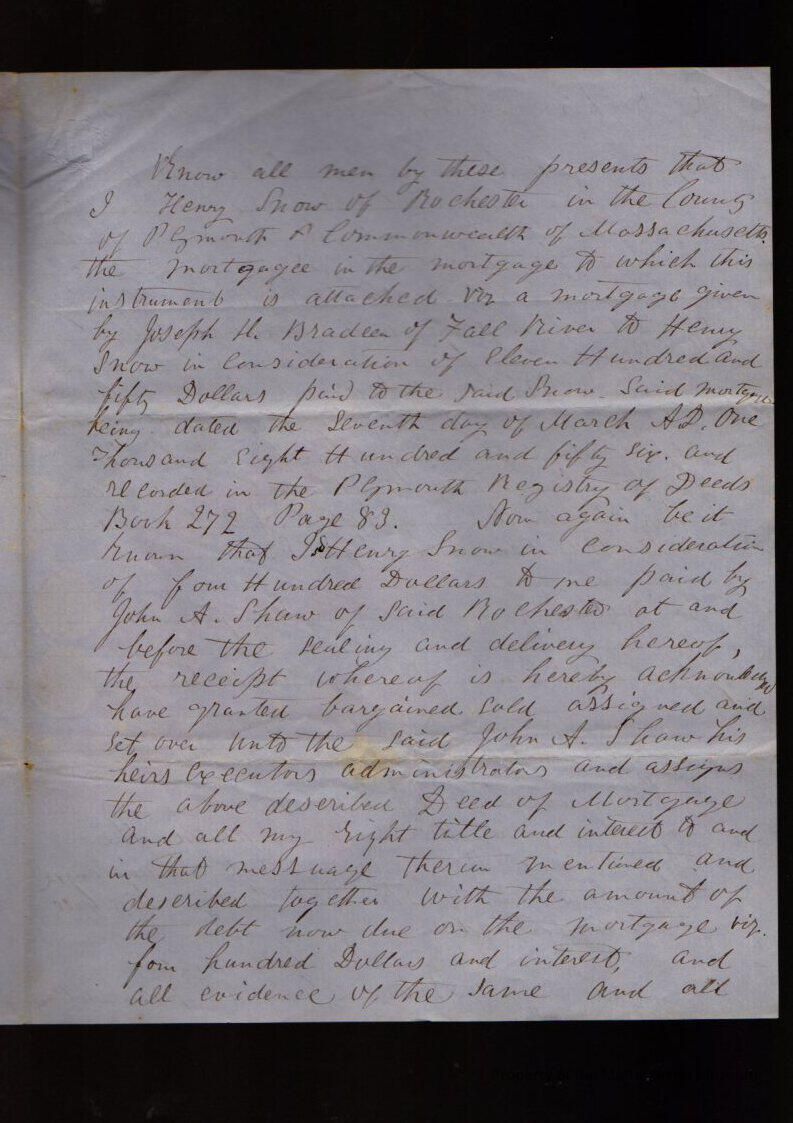 Know all men by these presents that
I Henry Snow of Rochester in the County
of Plymouth & Commonwealth of Massachusetts.
the mortgagee in the mortgage to which this
instrument is attached viz a mortgage given
by Joseph H. Braden of Fall River to Henry
Snow in Consideration of Eleven Hundred and
fifty Dollars paid to the said Snow. Said mortgage
being dated the Seventh day of March A.D. One
Thousand Eight Hundred and fifty Six. and
recorded in the Plymouth Registry of Deeds
Book 272 Page 83. Now again be it
known that I Henry Snow in Consideration
of four Hundred Dollars to me paid by
John A. Shaw of Said Rochester at and
before the sealing and delivery hereof,
the receipt whereof is hereby acknowledged
have granted bargained sold assigned and
Set over unto the said John A. Shaw his
heirs Executors administrators and assigns
the above described Deed of Mortgage
and all my right title and interest to and
in that messuage therein mentioned and
described together with the amount of
the debt now due on the mortgage viz.
four hundred Dollars and interest, and
all evidence of the same and all